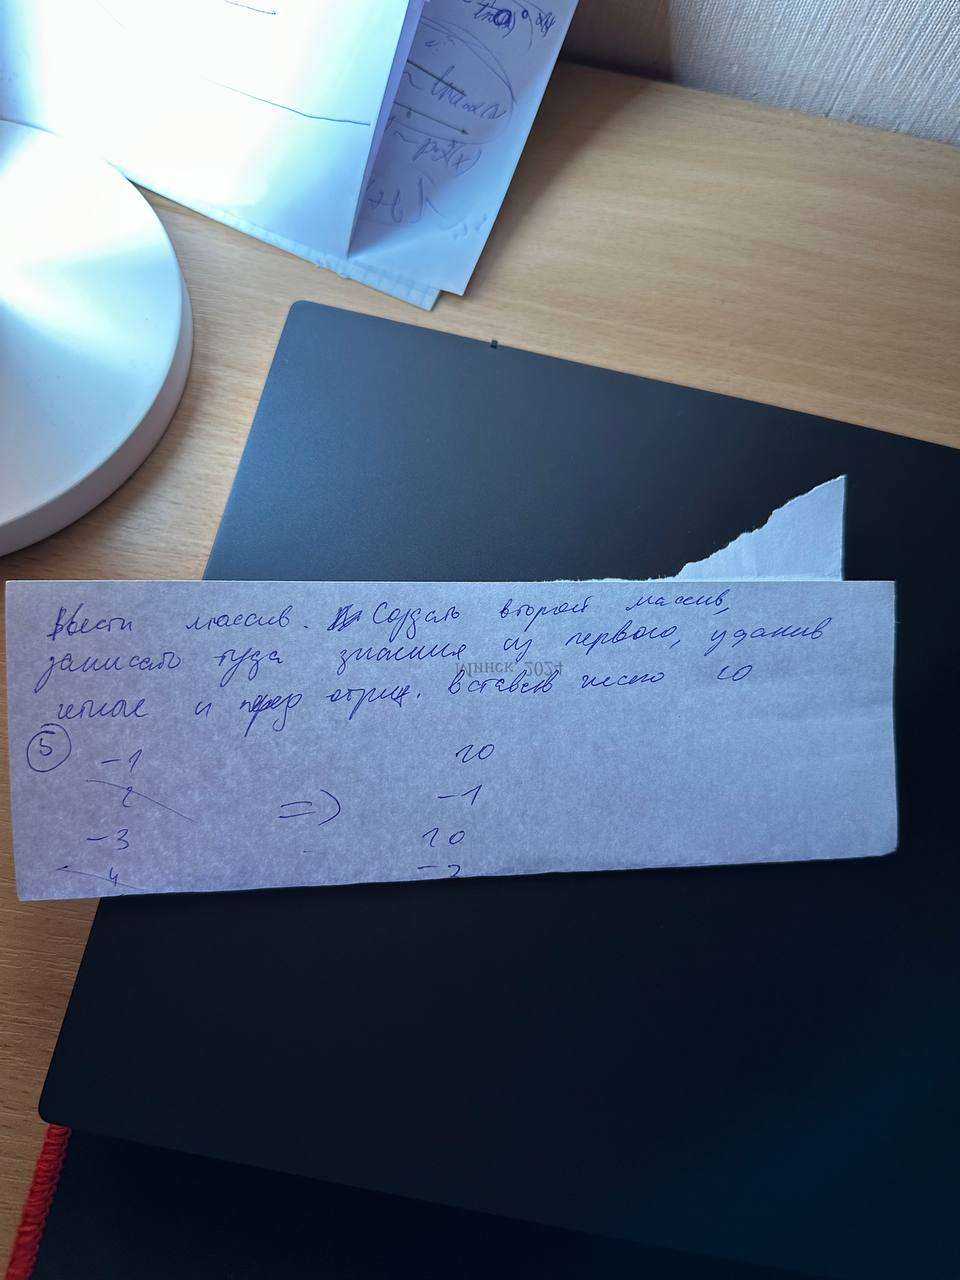 Ввести массив. Создать второй массив,
записать туда значения из первого, удалив
четное и перед отриц. вставив число 10
5
-1 10
2 => -1
-3 10
4 -3
Минск 2024